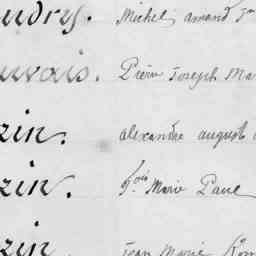 udry. Michel amand
uvais. Pierre Joseph Ma
zin. alexandre august
zin. f.ois Marie Paul
zin. Jean Marie